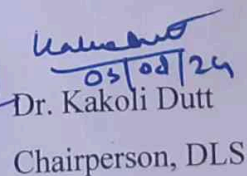 03/08/24
Dr. Kakoli Dutt
Chairperson, DLS